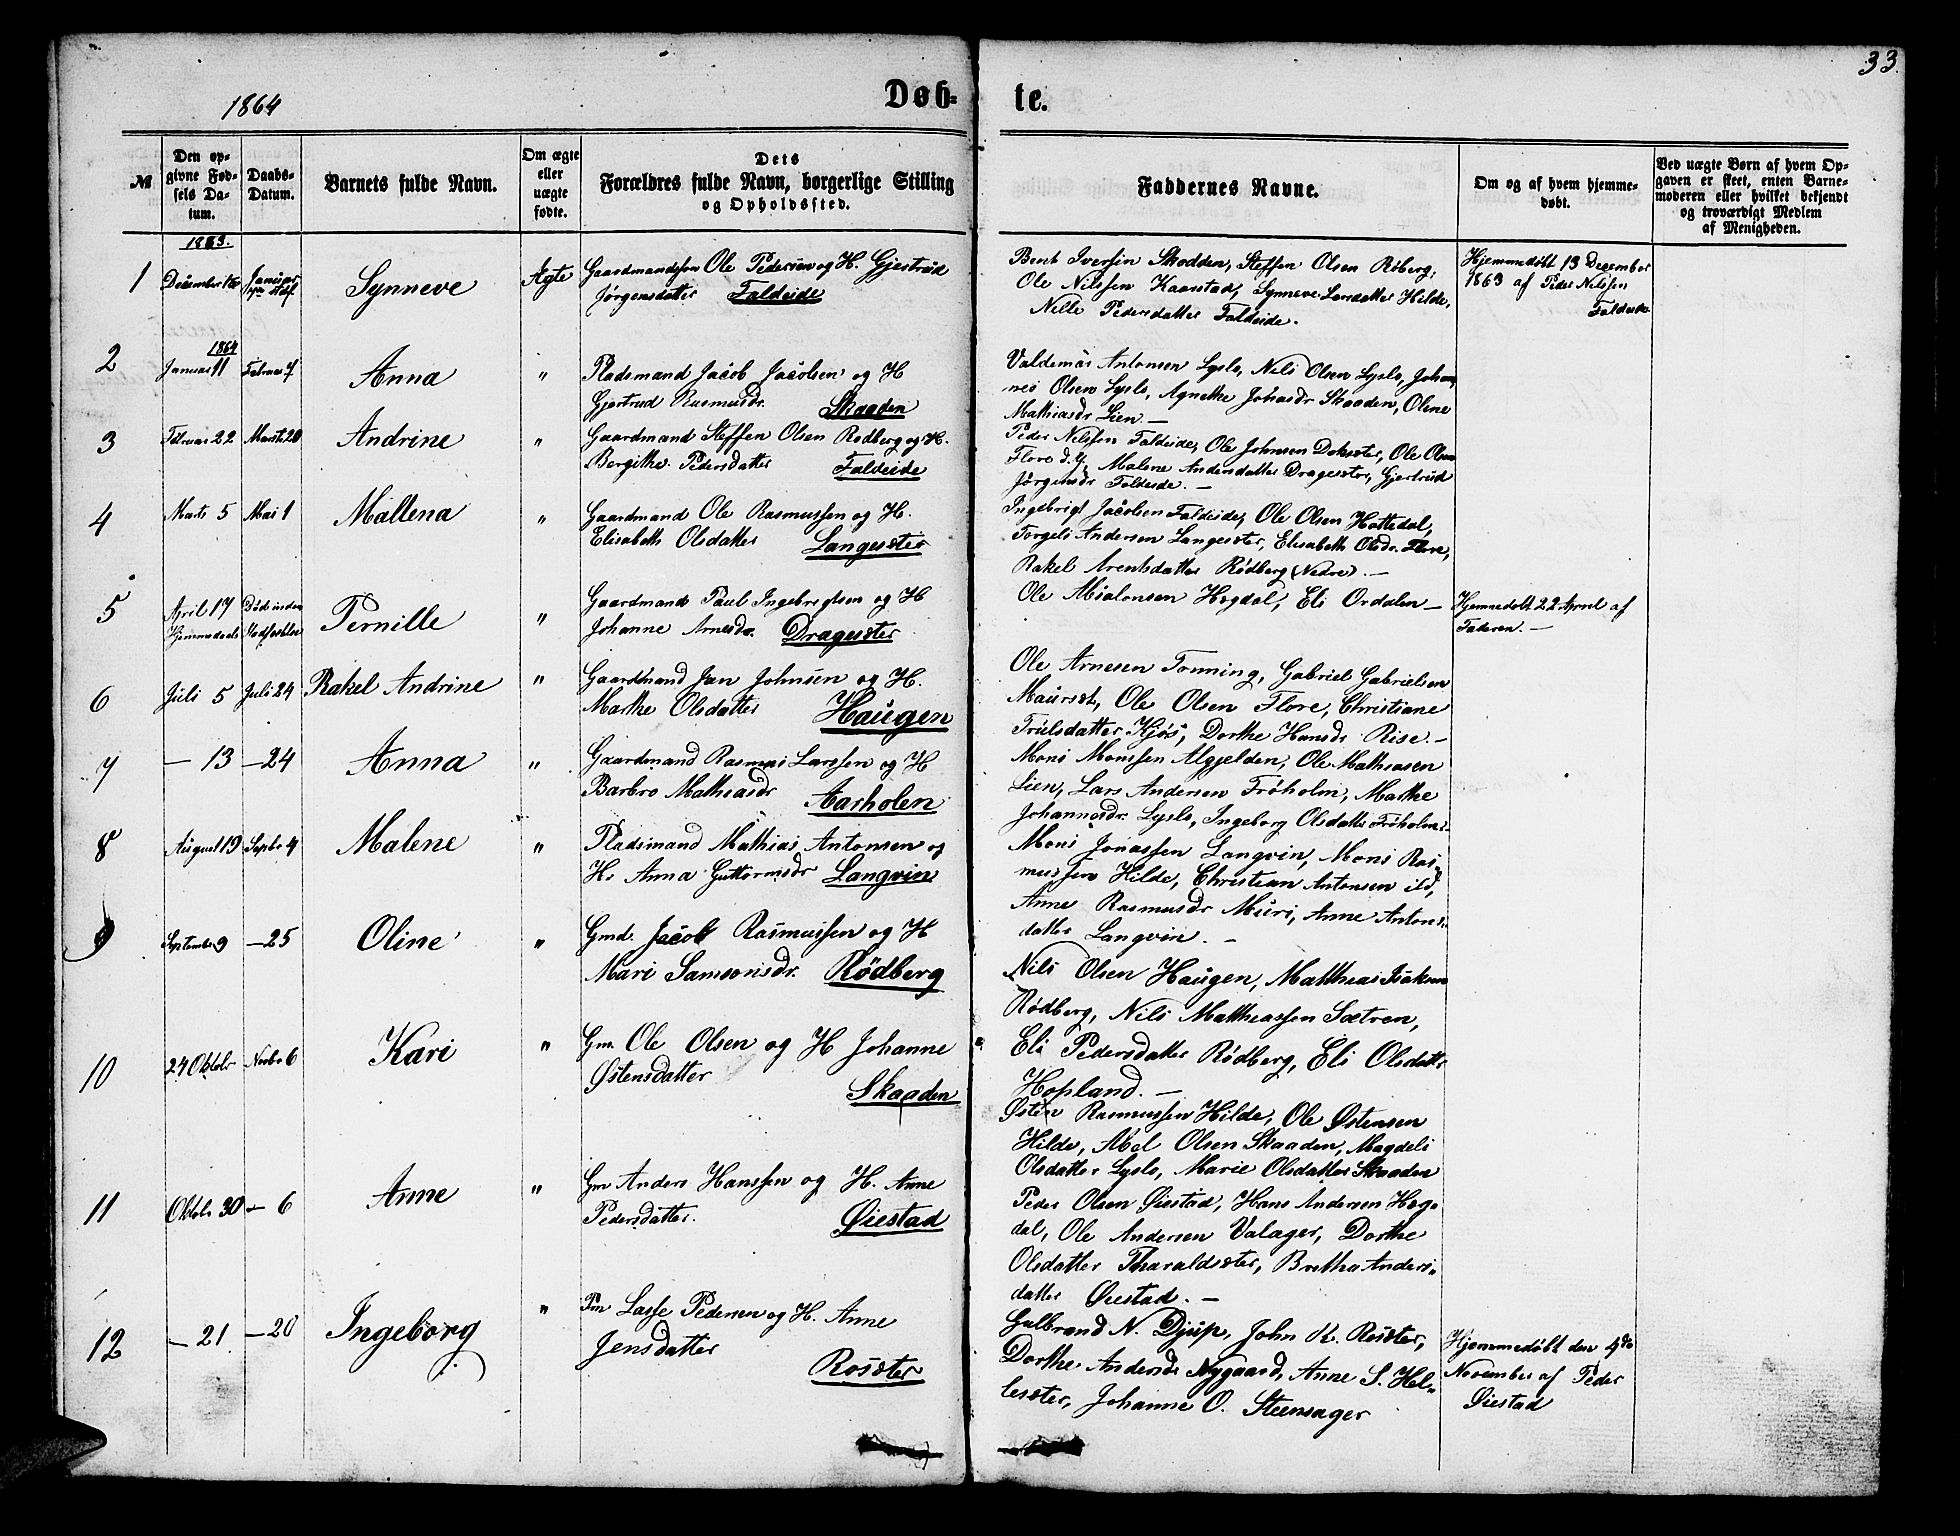 33
1864
Døb-
te.
№
Den op-
givne Fød-
sels Da-
tum.
Daabs-
Datum.
Barnets fulde Navn.
Om ægte
eller
uægte
fødte.
Dets
Forældres fulde Navn, borgerlige Stilling
og Opholdssted.
Faddernes Navne.
Om og af hvem hjemme-
døbt.
Ved uægte Børn af hvem Op-
gaven er skeet, enten Barne-
moderen eller hvilket bekjendt
og troværdigt Medlem
af Menigheden.
1863.
1
December
Januar
Synneve
Ægte
Gaardmandssøn Ole Pedersen og H. Gjertrud
Jörgensdatter Faldeide
Bent Iversen Skodden, Steffen Olsen Röberg,
Ole Nilssen Kaarstad, Synneve Larsdatter Hilde,
Nille Pedersdatter Faldeide.
Hjemmedöbt 13 December
1863 af Peder Nilssen
Faldeide
1864
2
Januar 11
Februar 7
Anna
"
Pladsmand Jacob Jacobsen og H
Gjertrud Rasmusdr. Skaaden
Valdemar Antonsen Lyslo, Nils Olsen Lyslo, Johan
nes Olsen Lyslo, Agnethe Johansdr Skaaden, Oline
Mathiasdr Lien. —
3
Februar 22
Marts 20
Andrine
"
Gaardmand Steffen Olsen Rødberg og H.
Bergithe Pedersdatter Faldeide
Peder Nilssen Faldeide, Ole Johnsen Dokseter, Ole Olsen
Flore d.y. Malene Andersdatter Drageseter, Gjertrud
Jörgensdr Faldeide. —
4
Marts 5
Mai 1
Mallena
"
Gaardmand Ole Rasmussen og H.
Elisabeth Olsdatter Langeseter
Ingebrigt Jacobsen Faldeide, Ole Olsen Hattedal,
Torgels Andersen Langeseter, Elisabeth Olsdr. Flore,
Rakel Arentsdatter Rödberg (Nedre). —
5
April 17
Hjemmedøbt
Død inden
Stadfæstelse
Pernille
"
Gaardmand Paul Ingebrigtsen og H
Johanne Arnesdr. Drageseter
Ole Mialonsen Hegdal, Eli Ordalen —
Hjemmedöbt 22 April af
Faderen. —
6
Juli 5
Juli 24
Rakel Andrine
"
Gaardmand Jan Johnsen og H.
Marthe Olsdatter Haugen
Ole Arnesen Tonning, Gabriel Gabrielsen
Maurset, Ole Olsen Flore, Christiane
Trulsdatter Kjøs, Dorthe Hansdr Rise. —
7
— 13
— 24
Anna
"
Gaardmand Rasmus Larssen og H
Barbro Mathiasdr Aarholen
Mons Monssen Algjelden, Ole Mathiasen
Lien, Lars Andersen Fröholm, Marthe
Johannesdr. Lyslo, Ingeborg Olsdatter Fröholm. —
8
August 19
Septbr 4
Malene
"
Pladsmand Mathias Antonsen og
H. Anna Guttormsdr Langvin
Mons Jonassen Langvin, Mons Ras-
mussen Hilde, Christian Antonsen ibd,
Anne Rasmusdr Muri, Anne Antons-
datter Langvin. —
9
September 9
— 25
Oline
"
Gmd. Jacob Rasmussen og H
Mari Samsonsdr. Rödberg
Nils Olsen Haugen, Matthias Isaksen
Rødberg, Nils Matthiassen Sætren,
Eli Pedersdatter Rödberg, Eli Olsdatter
Hopland. —
10
24 Oktobr
Novbr 6
Kari
"
Gm. Ole Olsen og H Johanne
Østensdatter
Skaaden
Østen Rasmussen Hilde, Ole Østensen
Hilde, Abel Olsen Skaaden, Magdeli
Olsdatter Lyslo, Marie Olsdatter Skaaden
11
Oktobr 30
— 6
Anne
"
Gm Anders Hanssen og H. Anne
Pedersdatter. Øiestad
Peder Olsen Øiestad, Hans Andersen Heg-
dal, Ole Andersen Valager, Dorthe
Olsdatter Tharaldseter, Brethe Anders-
datter Øiestad. —
12
— 21
— 20
Ingeborg
"
Pm Lasse Pedersen og H. Anne
Jensdatter
Roseter
Gulbrand N. Djup, John K. Roseter,
Dorthe Andersdr Nygaard, Anne S. Hel-
leseter, Johanne O. Steensager
Hjemmedöbt den 4de
November af Peder
Øiestad